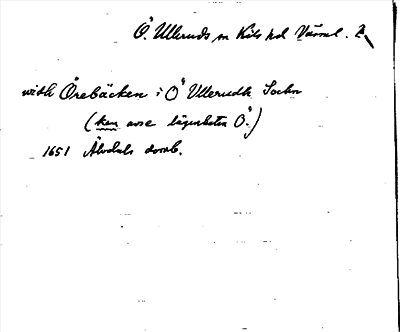 Ö. Ulleruds sn Kils hd Värml.
widh Örebäcken i Ö Ullerudh Sochn
(kan avse lägenheten Ö.)
1651 Älvdals domb.